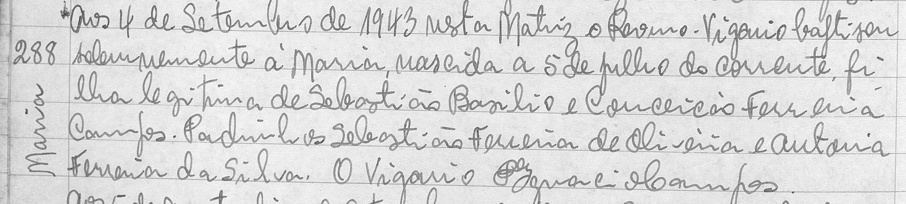 Aos 4 de Setembro de 1943 nesta Matriz o Revmo. Vigario baptisou
288 solemnemente á Maria, nascida a 5 de julho do corrente, fi-
Maria
lha legitima de Sebastião Basilio e Conceição Ferreira
Campos. Padrinhos Sebastião Ferreira de Oliveira e Antonia
Ferreira da Silva. O Vigario Campos.